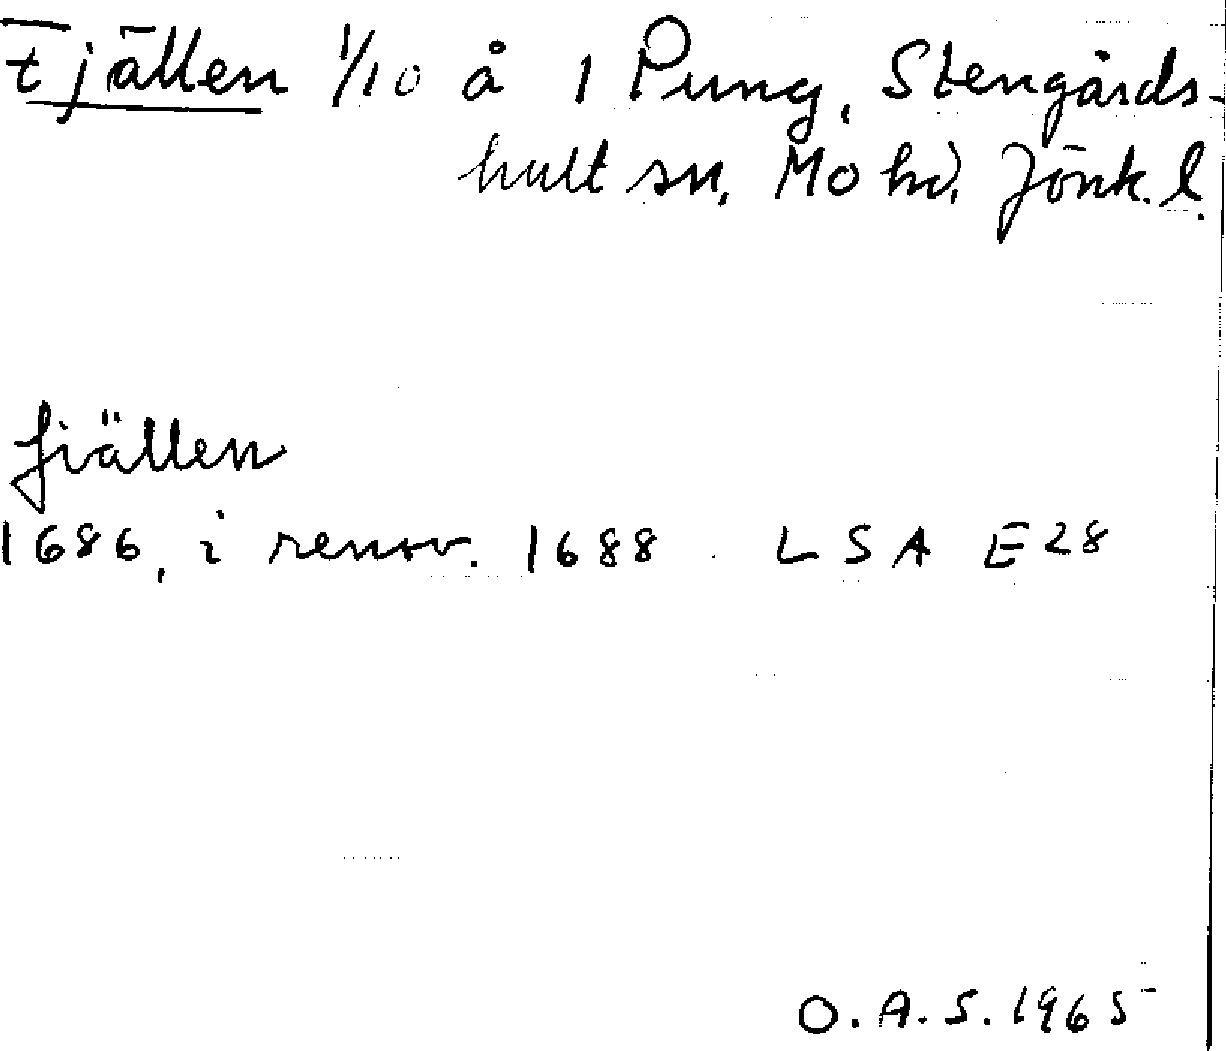 Fjällen 1/10 å 1 Pung, Stengårds-
hult sn, Mo hd, Jönk. l.
fiällen
1686, i renov. 1688. LSA E28
O.A.S. 1965